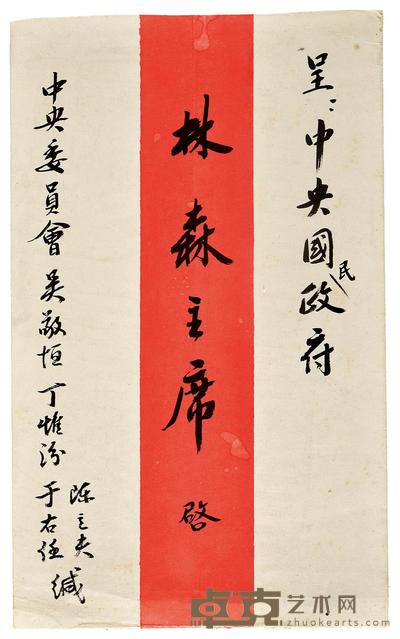 呈：中央國民政府
林森主席 啟
中央委員會 吳敬恒 丁惟汾 于右任 陳立夫 緘
卓克艺术网
zhuokearts.com